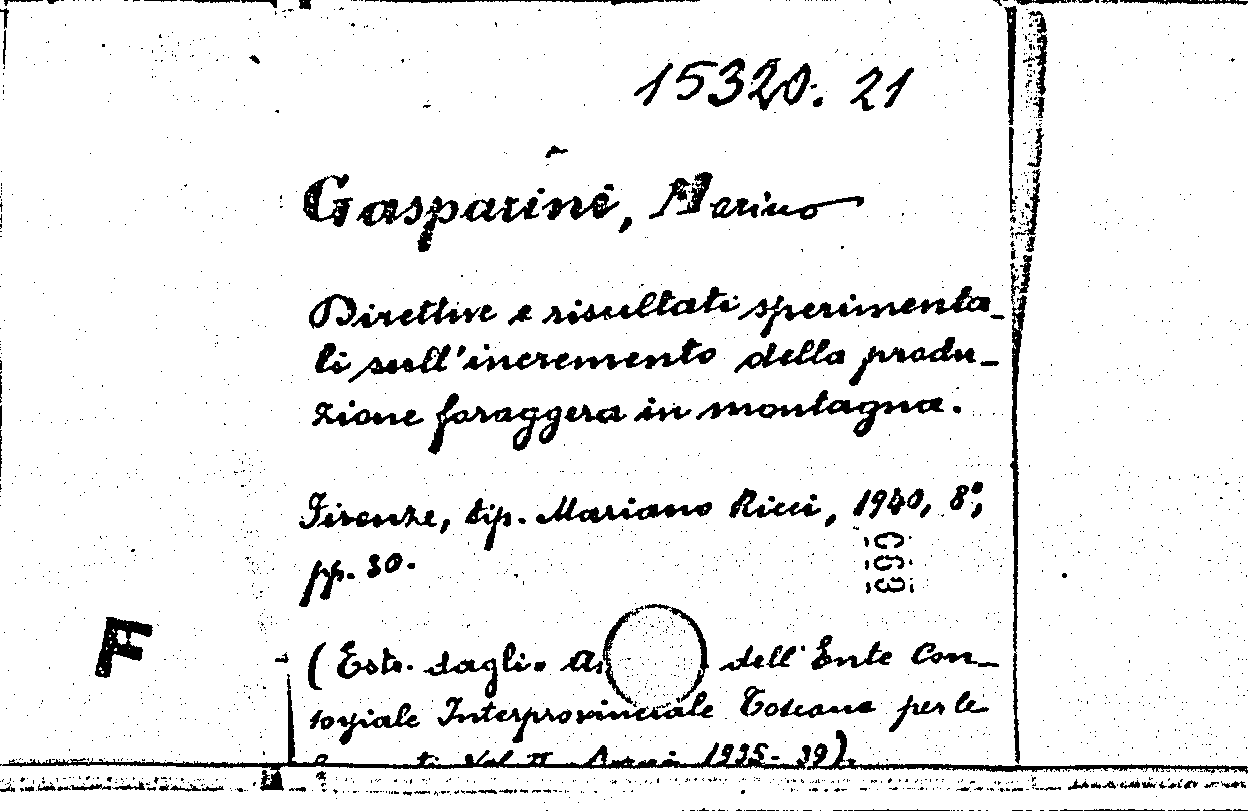 15320. 21
Gasparini, Marino
Direttive e risultati sperimenta_
li sull'incremento della produ_
zione foraggera in montagna.
Firenze, tip. Mariano Ricci, 1940, 8º,
pp. 30.
F
(Estr. dagli dell'Ente Con_
sorziale Interprovinciale Toscano per le
Vol. II 1935-39).